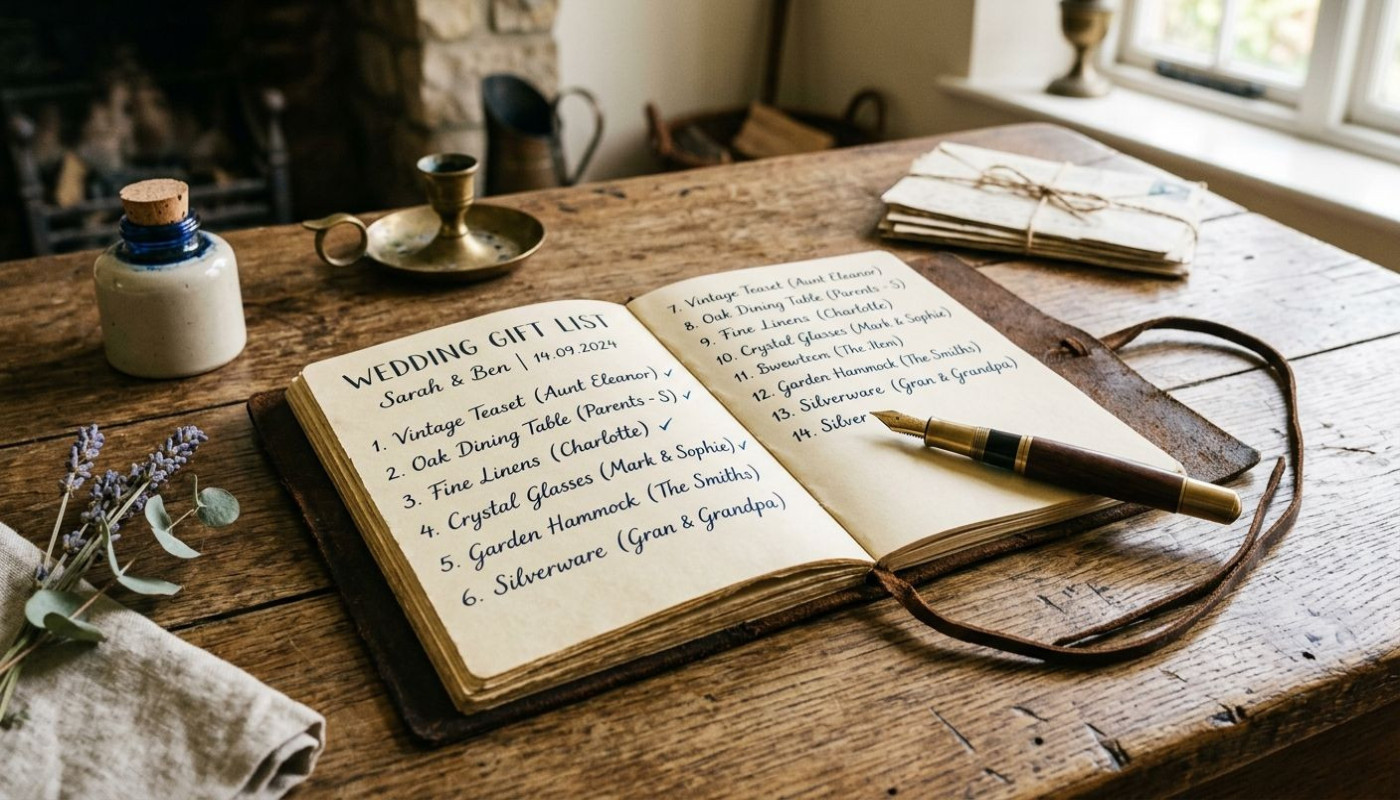 WEDDING GIFT LIST
Sarah & Ben | 14.09.2024
1. Vintage Teaset (Aunt Eleanor) ✓
2. Oak Dining Table (Parents - S) ✓
3. Fine Linens (Charlotte) ✓
4. Crystal Glasses (Mark & Sophie) ✓
5. Garden Hammock (The Smiths)
6. Silverware (Gran & Grandpa)
7. Vintage Teaset (Aunt Eleanor)
8. Oak Dining Table (Parents - S)
9. Fine Linens (Charlotte)
10. Crystal Glasses (Mark & Sophie)
11. (The
12. Garden Hammock (The Smiths)
13. Silverware (Gran & Grandpa)
14. Silver